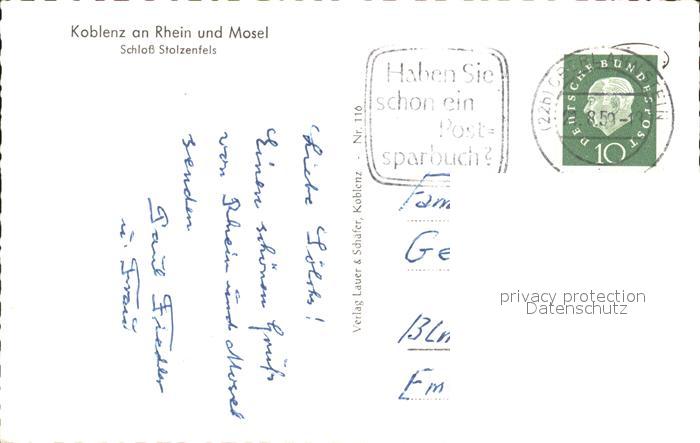 Koblenz an Rhein und Mosel
Schloß Stolzenfels
Haben Sie
schon ein
Post=
sparbuch?
DEUTSCHE BUNDESPOST
10
Verlag Lauer & Schäfer, Koblenz - Nr. 116
Liebe
Einen schönen Gruß
von Rhein und Mosel
senden
Paul Fiedler
u. Frau
Fam
Ge
Em
privacy protection
Datenschutz